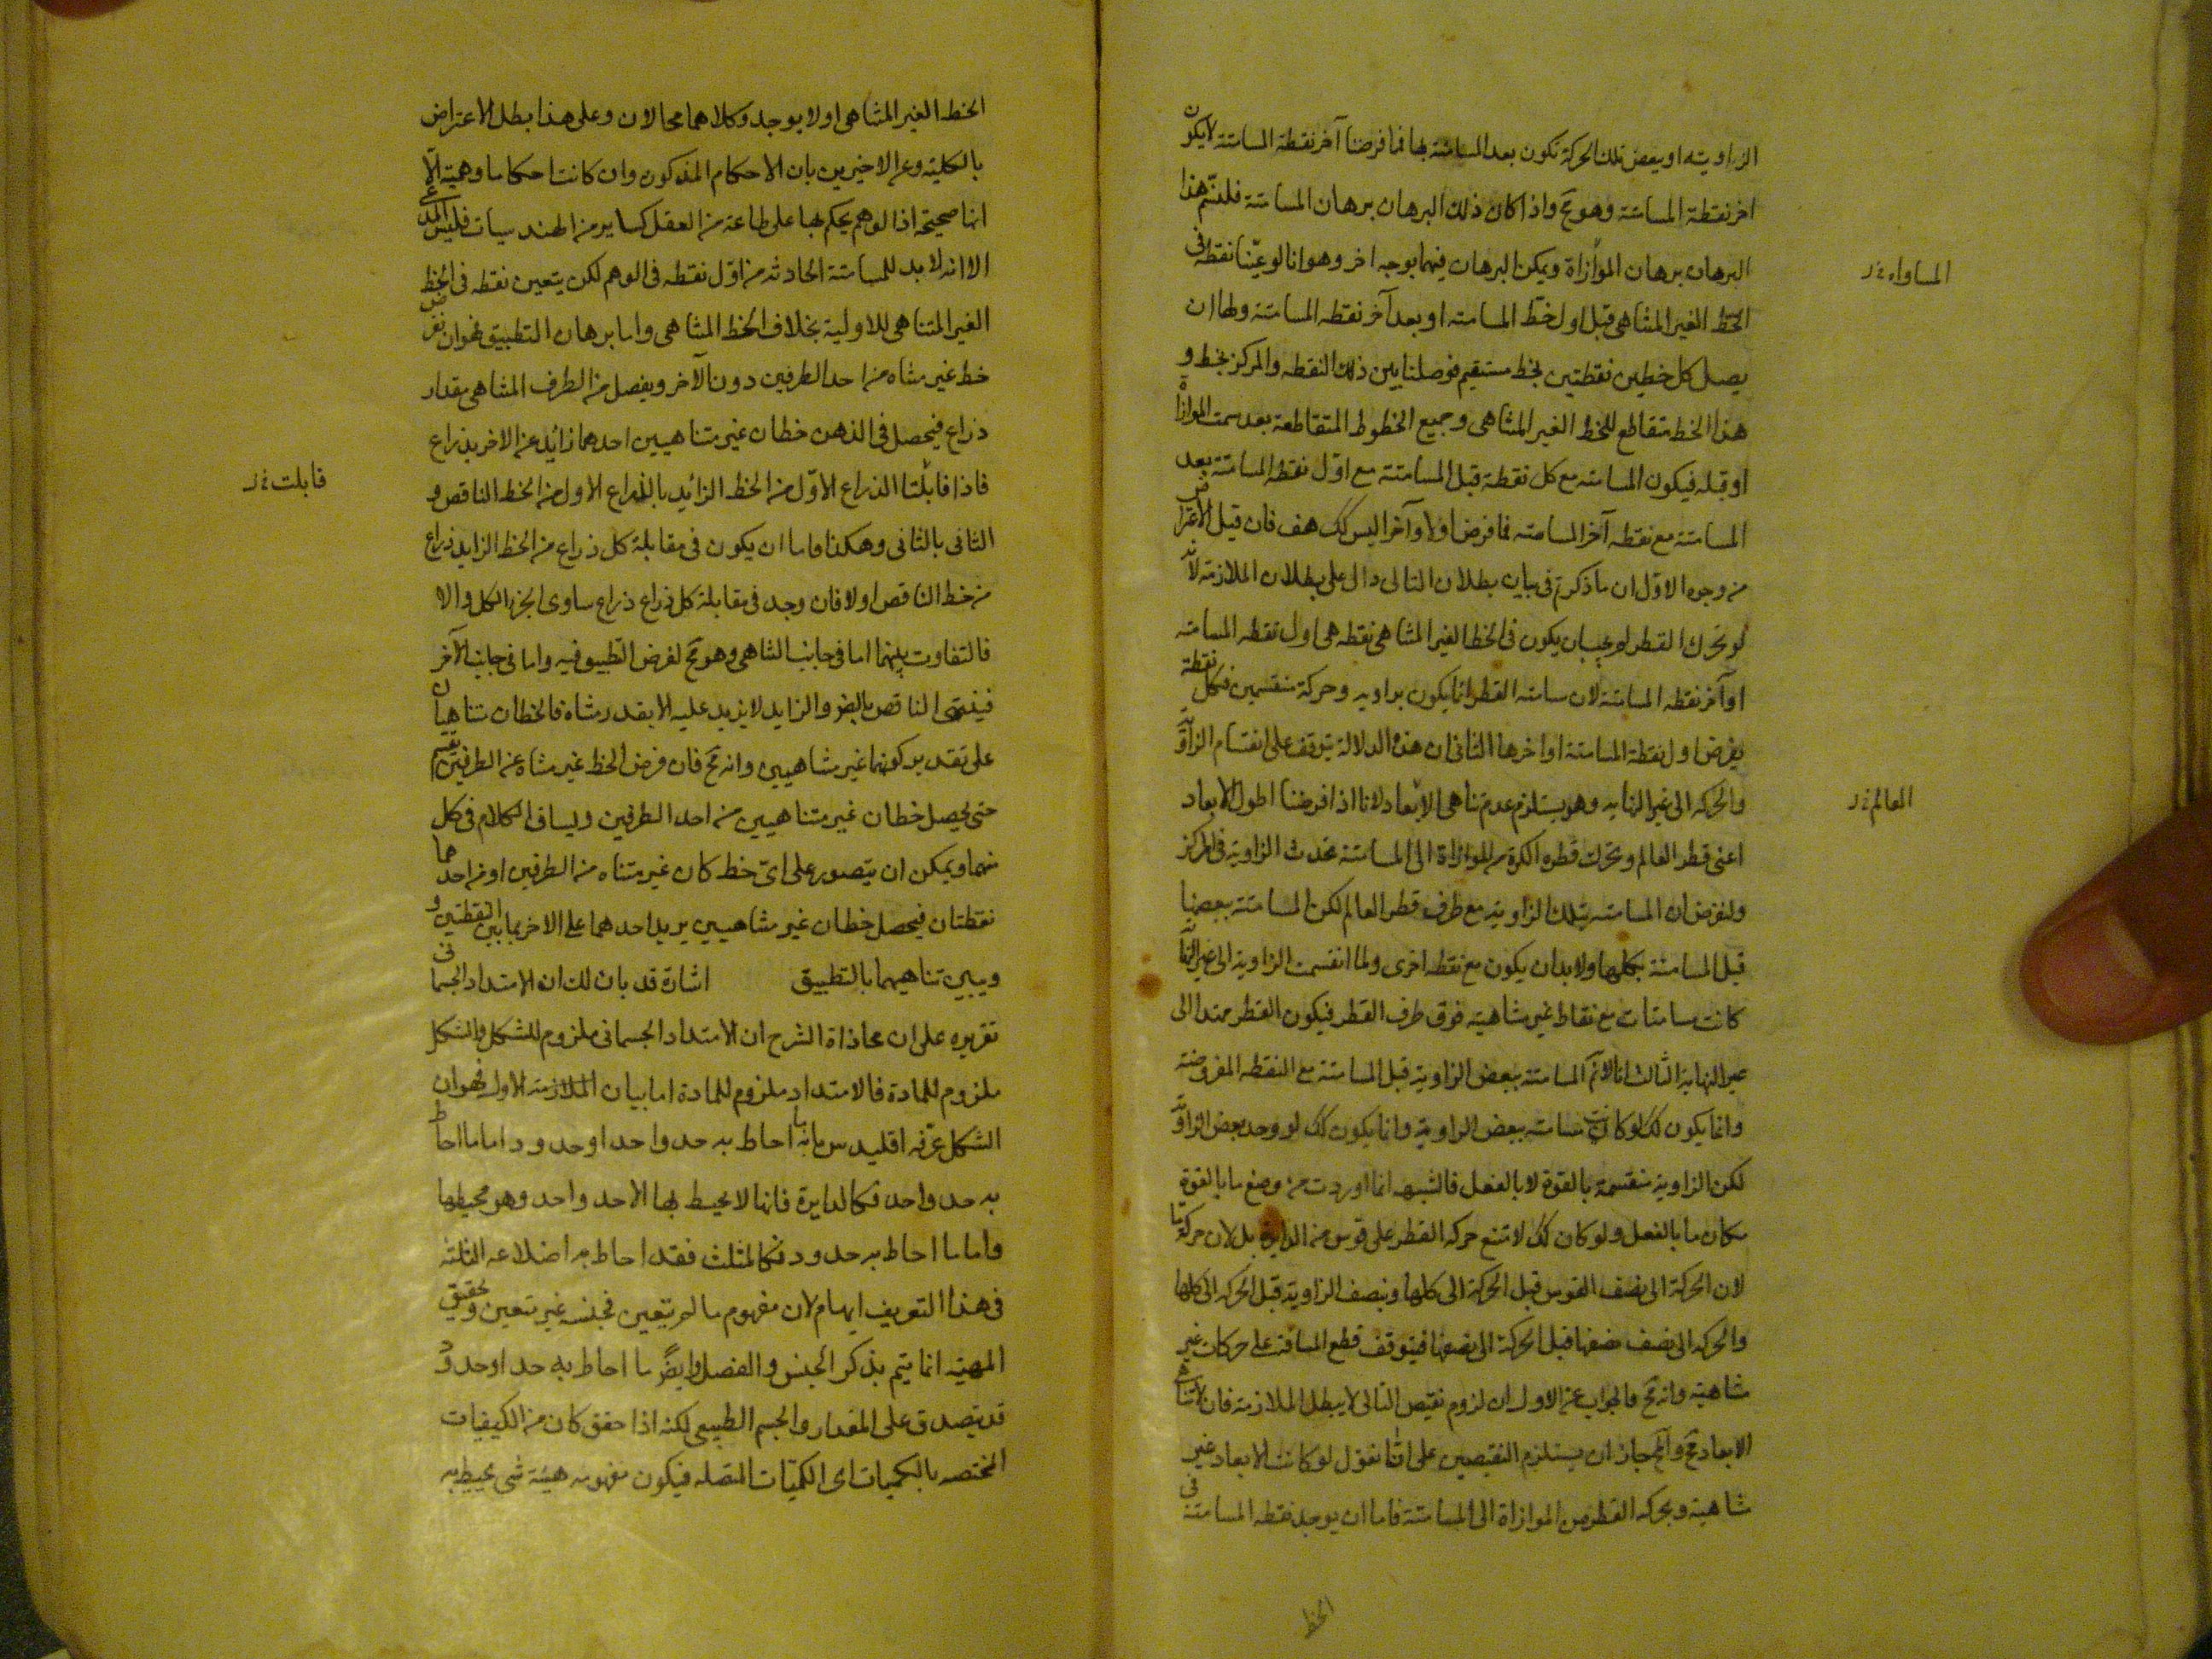 الزاوية او ببعض تلك الحركة تكون بعد المسامتة بها فما فرضنا آخر نقطة المسامتة لا يكون
اخر نقطة المسامتة وهو مح واذا كان ذلك البرهان برهان المسامتة فلنسم هذا
البرهان برهان الموازاة ويمكن البرهان فيهما بوجه اخر وهو انا لو عيّنا نقطة فى
المساواه خ ر
الخط الغير المتناهى قبل اول خط المسامته او بعد آخر نقطه المسامتة ولها ان
يصل كل خطين نقطتين بخط مستقيم فوصلنا بين ذلك النقطه والمركز بخط و
هذا الخط متقاطع للخط الغير المتناهى وجميع الخطوط المتقاطعة بعد سمت الموازاة
او قبله فيكون المسامته مع كل نقطة قبل المسامتة مع اوّل نقطه المسامتة بعد
المسامتة مع نقطه آخر المسامته فما فرض اولا وآخرا ليس كك هف فان قيل الاعتراض
من وجوه الاوّل ان ما ذكرتم فى بيان بطلان التالى دال على بطلان الملازمة لانه
لو تحرك القطر لم يجب ان يكون فى الخط الغير المتناهى نقطه هى اول نقطه المسامته
او آخر نقطه المسامتة لان مسامته القطر انما يكون بزاويه وحركة منقسمين فكل نقطة
يفرض اول نقطة المسامتة او اخرها الثانى ان هذه الدلالة يتوقف على انقسام الزاوية
والحركة الى غير النهايه وهو يستلزم عدم تناهى الابعاد لانا اذا فرضنا اطول الابعاد
العالم خ ر
اعنى قطر العالم وتحرك قطر الكرة من الموازاة الى المسامتة تحدث الزاوية فى المركز
ولنفرض ان المسامته بتلك الزاوية مع طرف قطر العالم لكن المسامتة ببعضها
قبل المسامتة بكلها ولا بد ان يكون مع نقطه اخرى ولما انقسمت الزاوية الى غير النهاية
كانت مسامتات مع نقاط غير متناهية فوق طرف القطر فيكون القطر ممتدا الى
غير النهاية الثالث انا لانم المسامتة ببعض الزاوية قبل المسامتة مع النقطه المفروضة
وانما يكون كك لو كانت مسامته ببعض الزاوية وانما يكون كك لو وجد بعض الزاوية
لكن الزاوية منقسمة بالقوة لا بالفعل فالشبهه انما اوردت من وضع ما بالقوة
مكان ما بالفعل ولو كان كك لامتنع حركه القطر على قوس من الدايرة بل لان حركة ما
لان الحركة الى نصف القوس قبل الحركة الى كلها وبنصف الزاوية قبل الحركه الى كلها
والحركه الى نصف نصفها قبل الحركة الى نصفها فيتوقف قطع المسافة على حركات غير
متناهية وانه مح والجواب عن الاول ان لزوم نقيض التالى لا يبطل الملازمة فان لاتناهى
الابعاد مح والمح جاز ان يستلزم النقيضين على انا نقول لو كانت الابعاد غير
متناهية وبحركه القطر من الموازاة الى المسامتة فاما ان يوجد نقطه المسامتة فى
الخط
الخط الغير المتناهى اولا يوجد وكلاهما محالان وعلى هذا بطل الاعتراض
بالكلية وعن الاخيرين بان الاحكام المذكورة وان كانت احكاما وهمية الّا
انها صحيحة اذ الوهم يحكم بها على طاعة من العقل كساير من الهندسيات فليس المدعى
الا انه لا بد للمسامتة الحادثه من اوّل نقطه فى الوهم لكن يتعين نقطه فى الخط
الغير المتناهى للاولية بخلاف الخط المتناهى واما برهان التطبيق فهو ان نفرض
خط غير متناه من احد الطرفين دون الآخر ويفصل من الطرف المتناهى مقدار
ذراع فيحصل فى الذهن خطان غير متناهيين احدهما زايد عن الاخر بذراع
فاذا قابلنا الذراع الاوّل من الخط الزائد بالذراع الاول من الخط الناقص و
قابلت خ ر
الثانى بالثانى وهكذا فاما ان يكون فى مقابلة كل ذراع من الخط الزايد ذراع
من خط الناقص اولا فان وجد فى مقابلة كل ذراع ذراع ساوى الجزء الكل والا
فالتفاوت بينهما اما فى جانب التناهى وهو مح لفرض التطبيق فيه واما فى جانب الآخر
فينتهى الناقص بالضرورة والزايد لا يزيد عليه الا بقدر متناه فالخطان متناهيان
على تقدير كونهما غير متناهيين وانه مح فان فرض الخط غير متناه عن الطرفين تقسيم
حتى يحصل خطان غير متناهيين من احد الطرفين ويساق الكلام فى كل
منهما ويمكن ان يتصور على اىّ خط كان غير متناه من الطرفين او من احدهما
نقطتان فيحصل خطان غير متناهيين يزيد احدهما على الاخر بما بين النقطتين و
ويبين تناهيهما بالتطبيق اشارة قد بان لك ان الامتداد الجسمانى
تقريره على ان محاذاة الشرح ان الامتداد الجسمانى ملزوم للشكل والشكل
ملزوم للمادة فالامتداد ملزوم للمادة اما بيان الملازمة الاولى فهو ان
الشكل عرّفه اقليدس بانه ما احاط به حد واحد او حدود اما ما احاط
به حد واحد فكالدايرة فانها لا يحيط بها الا حد واحد وهو محيطها
واما ما احاط به حدود فكالمثلث فقد احاط به اضلاعه الثلثه
فى هذا التعريف ابهام لان مفهوم ما لم يتعين فجنسه غير متعين وتحقيق
المهية انما يتم بذكر الجنس والفصل وايضً ما احاط به حد او حدود
قد يصدق على المقدار والجسم الطبيعى لكنه اذا حقق كان من الكيفيات
المختصه بالكميات اى الكميّات المتصله فيكون مفهومه هيئة شى يحيط به